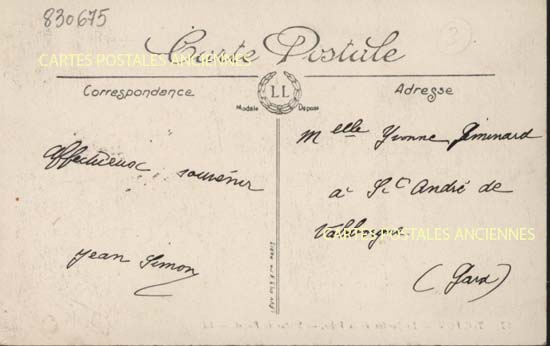 830675
Carte Postale
CARTES POSTALES ANCIENNES
Correspondance
LL
Modèle Déposé
Adresse
Melle Yvonne
Affectueux souvenir
à St André de
CARTES POSTALES ANCIENNES
Jean Simon
(Gard)